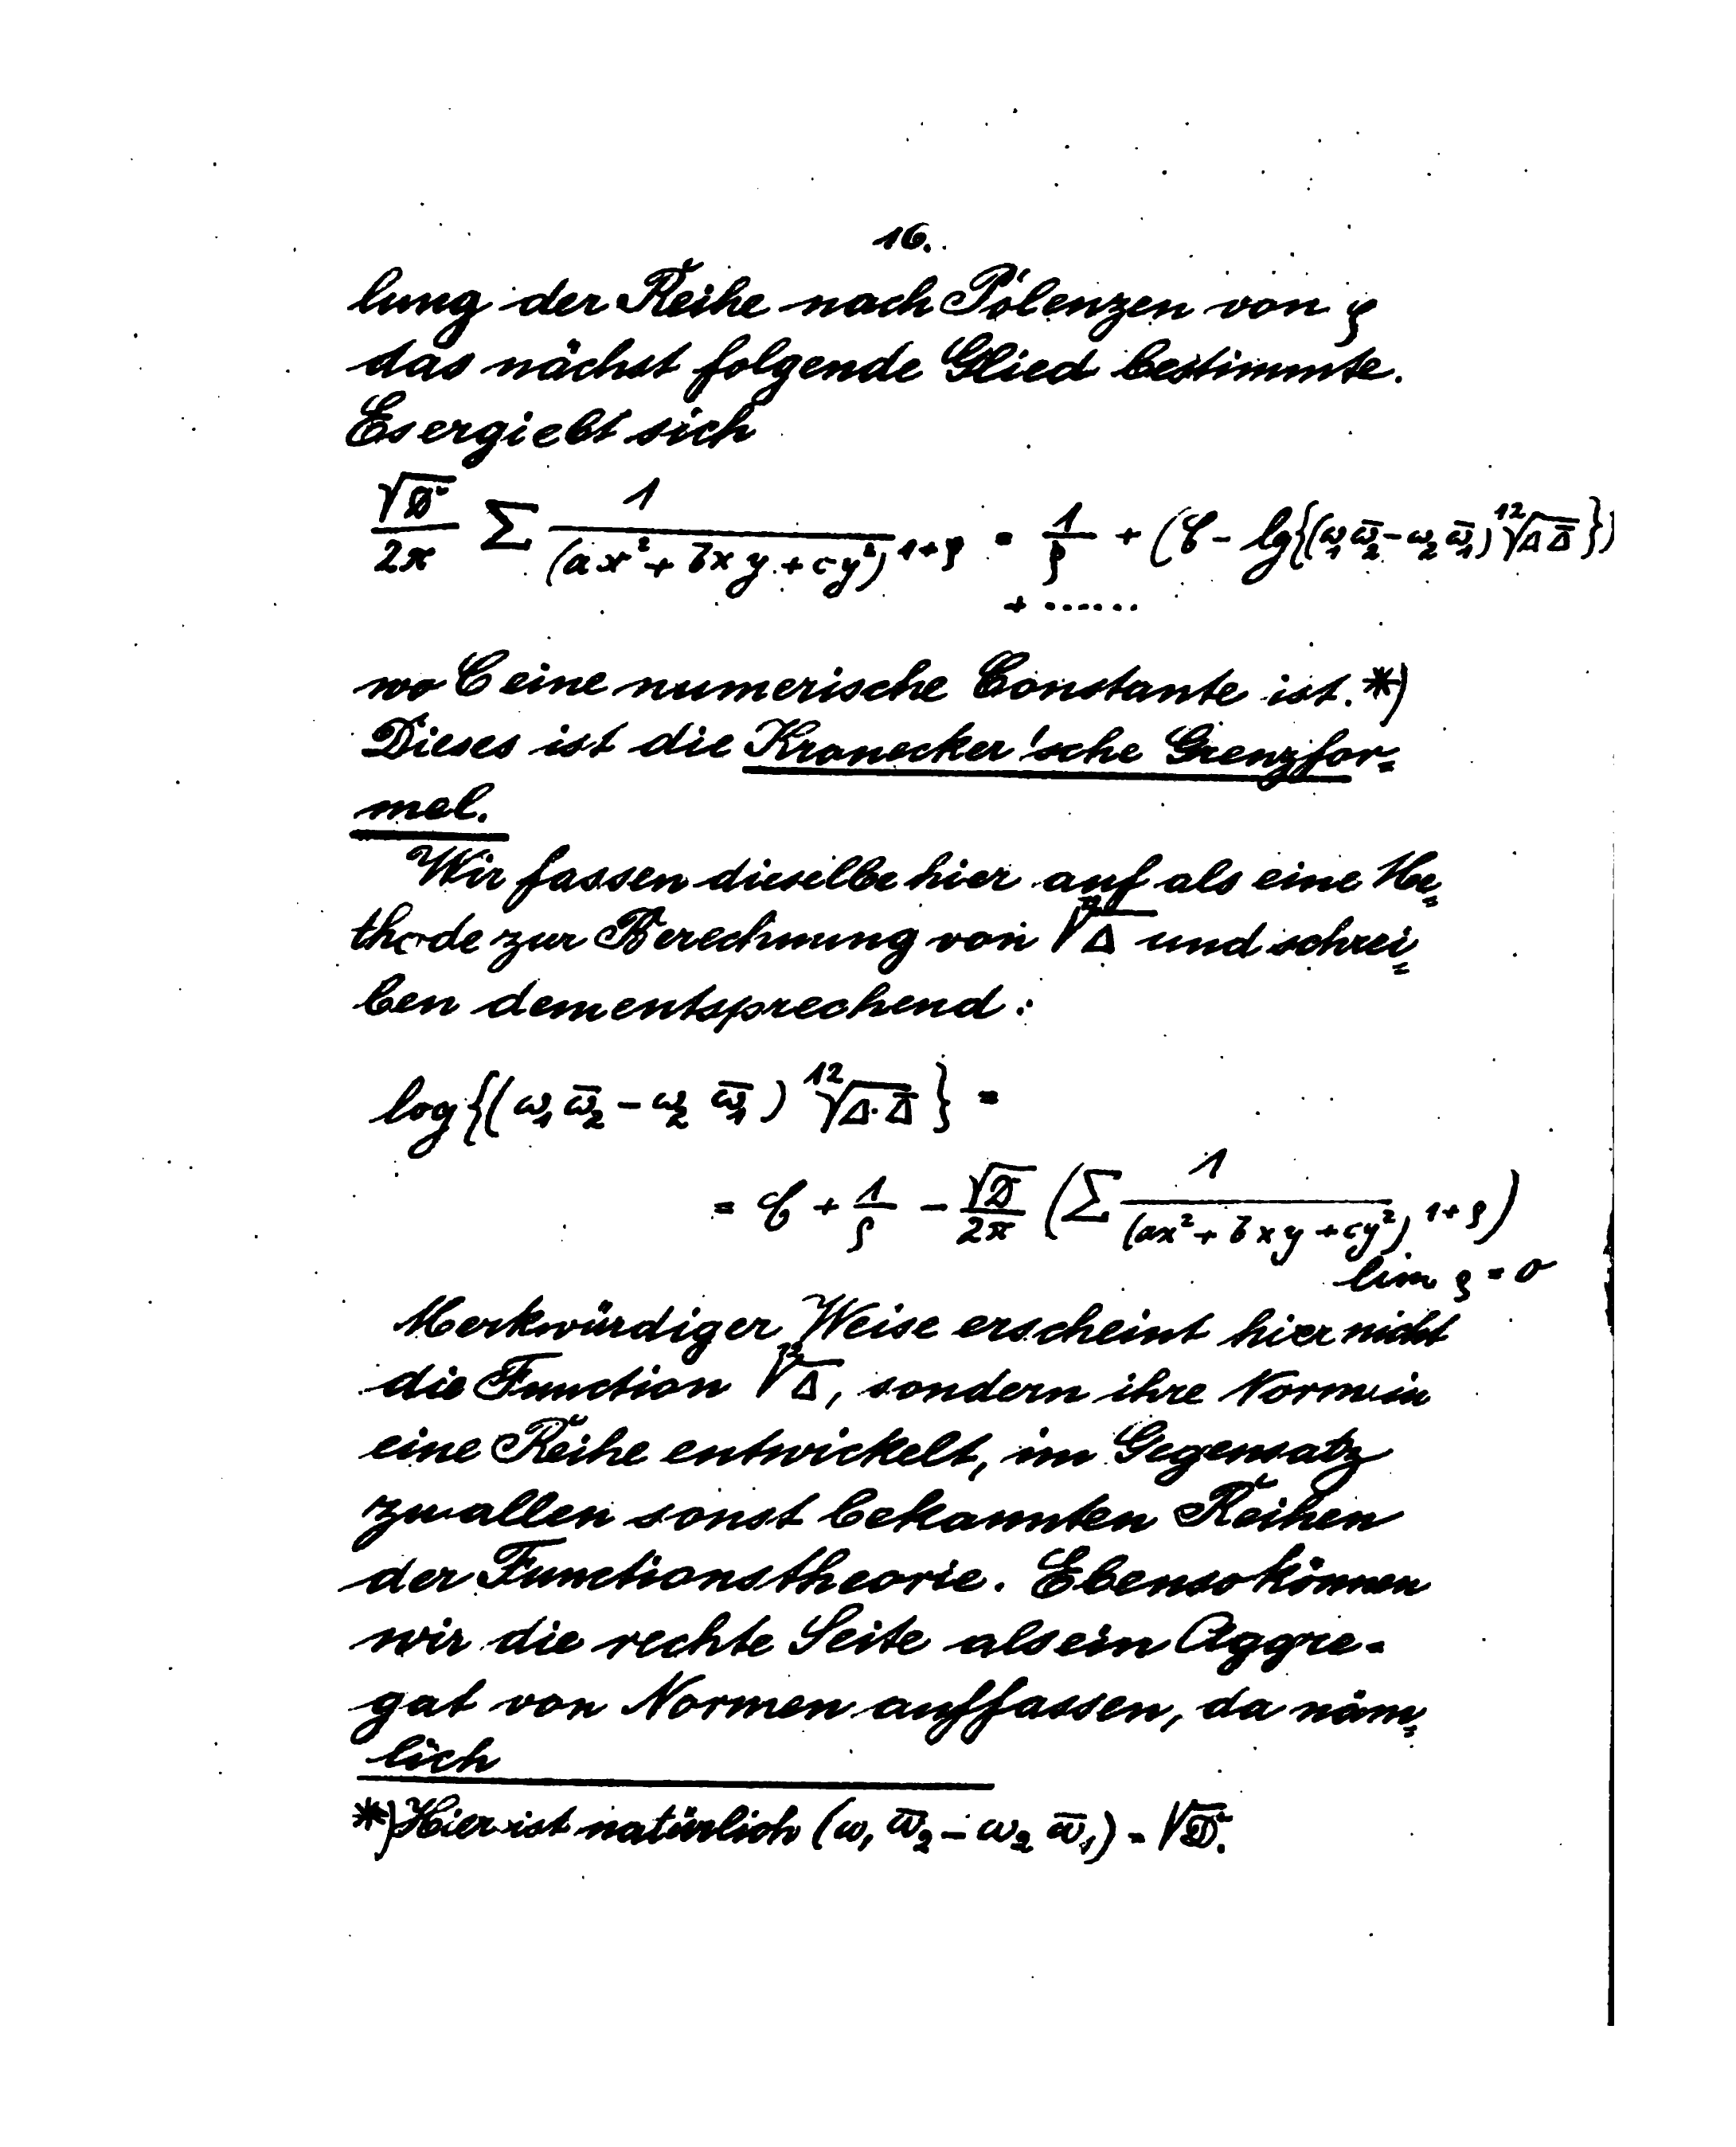 16.
lung der Reihe nach Potenzen von ϱ
das nächst folgende Glied bestimmte.
Es ergiebt sich
√D / 2π Σ 1 / (ax² + bxy + cy²)^{1+ϱ} = 1/ϱ + (C - lg{(ω₁ω̄₂ - ω₂ω̄₁) ¹²√ΔΔ̄})
+ ......
wo C eine numerische Constante ist.*)
Dieses ist die Kronecker'sche Grenzfor=
mel.
Wir fassen dieselbe hier auf als eine Me=
thode zur Berechnung von ¹²√Δ und schrei=
ben dementsprechend:
log{(ω₁ω̄₂ - ω₂ω̄₁) ¹²√Δ·Δ̄} =
= C + 1/ϱ - √D / 2π (Σ 1 / (ax² + bxy + cy²)^{1+ϱ})
lim ϱ = 0
Merkwürdiger Weise erscheint hier nicht
die Function ¹²√Δ, sondern ihre Norm in
eine Reihe entwickelt, im Gegensatz
zu allen sonst bekannten Reihen
der Functionstheorie. Ebenso können
wir die rechte Seite als ein Aggre=
gat von Normen auffassen, da näm=
lich
*) Hier ist natürlich (ω₁ω̄₂ - ω₂ω̄₁) = √D.